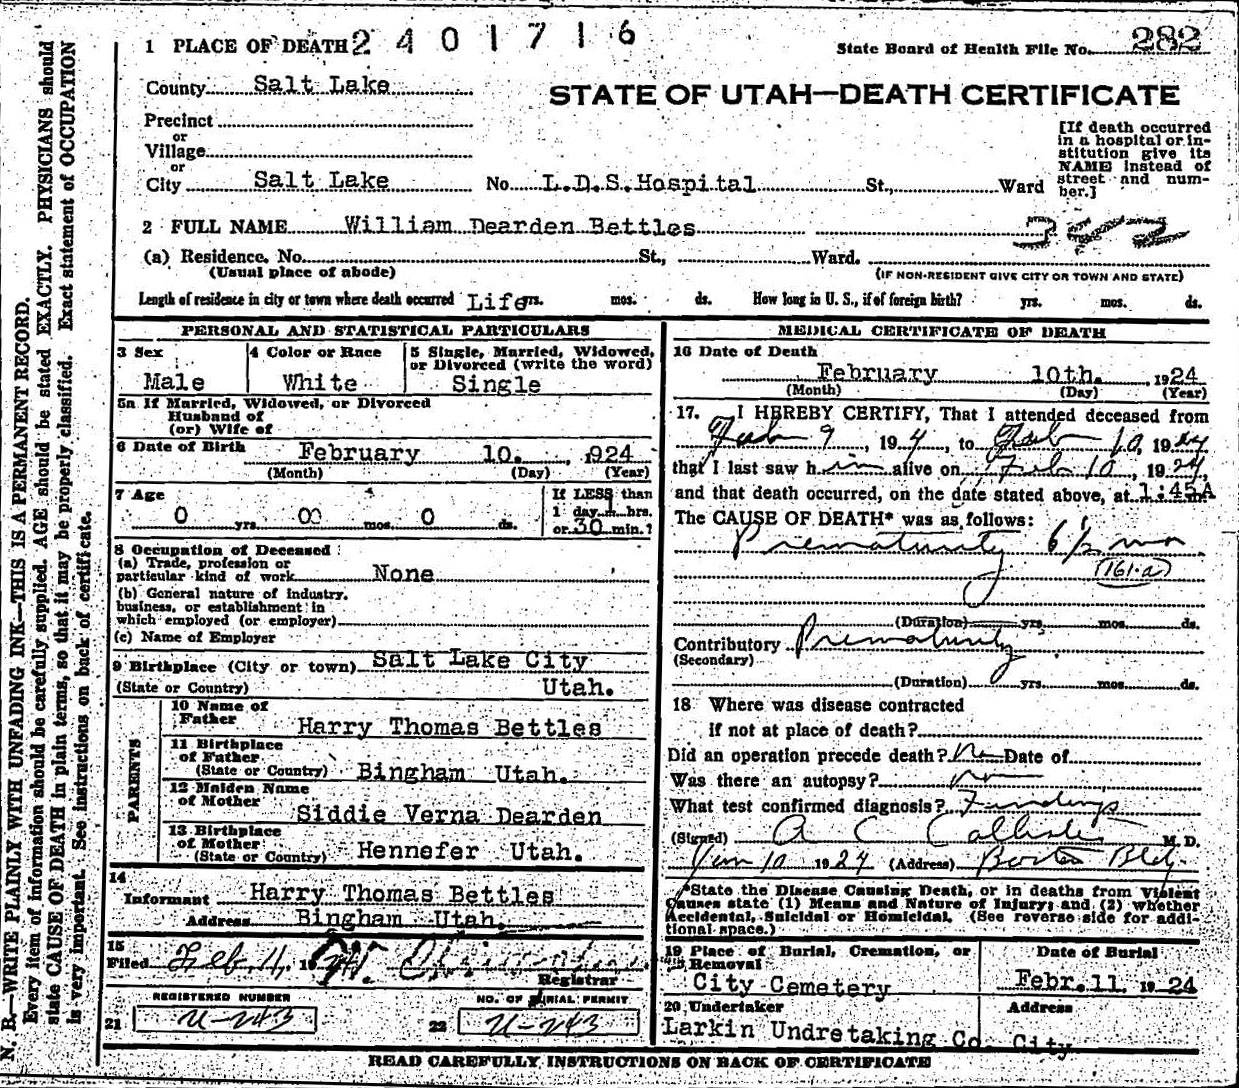 1 PLACE OF DEATH 2 4 0 1 7 1 6
State Board of Health File No. 282
County Salt Lake
STATE OF UTAH—DEATH CERTIFICATE
Precinct
or
Village
or
City Salt Lake No. L.D.S.Hospital St., Ward
[If death occurred
in a hospital or in-
stitution give its
NAME instead of
street and num-
ber.]
2 FULL NAME William Dearden Bettles
(a) Residence. No. St., Ward.
(Usual place of abode)
(IF NON-RESIDENT GIVE CITY OR TOWN AND STATE)
Length of residence in city or town where death occurred Life yrs. mos. ds. How long in U. S., if of foreign birth? yrs. mos. ds.
PERSONAL AND STATISTICAL PARTICULARS
3 Sex
Male
4 Color or Race
White
5 Single, Married, Widowed,
or Divorced (write the word)
Single
5a If Married, Widowed, or Divorced
Husband of
(or) Wife of
6 Date of Birth February 10. , 924
(Month) (Day) (Year)
7 Age
0 yrs. 00 mos. 0 ds.
If LESS than
1 day 1 hrs.
or 30 min.?
8 Occupation of Deceased
(a) Trade, profession or
particular kind of work None
(b) General nature of industry,
business, or establishment in
which employed (or employer)
(c) Name of Employer
9 Birthplace (City or town) Salt Lake City
(State or Country) Utah.
PARENTS
10 Name of
Father Harry Thomas Bettles
11 Birthplace
of Father
(State or Country) Bingham Utah.
12 Maiden Name
of Mother
Siddie Verna Dearden
13 Birthplace
of Mother
(State or Country) Hennefer Utah.
14
Informant Harry Thomas Bettles
Address Bingham Utah.
15
Filed Feb. 11, 19 24
Registrar
REGISTERED NUMBER
21 U-243
NO. OF BURIAL PERMIT
22 U-243
MEDICAL CERTIFICATE OF DEATH
16 Date of Death
February 10th. , 1924
(Month) (Day) (Year)
17. I HEREBY CERTIFY, That I attended deceased from
Feb 9 , 19 4, to Feb 10, 19 24
that I last saw h im alive on Feb 10 , 19 24,
and that death occurred, on the date stated above, at 1:45A m.
The CAUSE OF DEATH* was as follows:
Prematurity 6 1/2 mo
161-a
(Duration) yrs. mos. ds.
Contributory Prematurity
(Secondary)
(Duration) yrs. mos. ds.
18 Where was disease contracted
if not at place of death?
Did an operation precede death? No Date of
Was there an autopsy? no
What test confirmed diagnosis? Findings
(Signed) A C Callister M. D.
Jan 10 19 24 (Address) Boston Bldg.
*State the Disease Causing Death, or in deaths from Violent
Causes state (1) Means and Nature of Injury; and (2) whether
Accidental, Suicidal or Homicidal. (See reverse side for addi-
tional space.)
19 Place of Burial, Cremation, or
Removal
City Cemetery
Date of Burial
Febr. 11. 19 24
20 Undertaker
Larkin Undretaking Co.
Address
City
READ CAREFULLY INSTRUCTIONS ON BACK OF CERTIFICATE
N. B.—WRITE PLAINLY WITH UNFADING INK—THIS IS A PERMANENT RECORD.
Every item of information should be carefully supplied. AGE should be stated EXACTLY. PHYSICIANS should
state CAUSE OF DEATH in plain terms, so that it may be properly classified. Exact statement of OCCUPATION
is very important. See instructions on back of certificate.